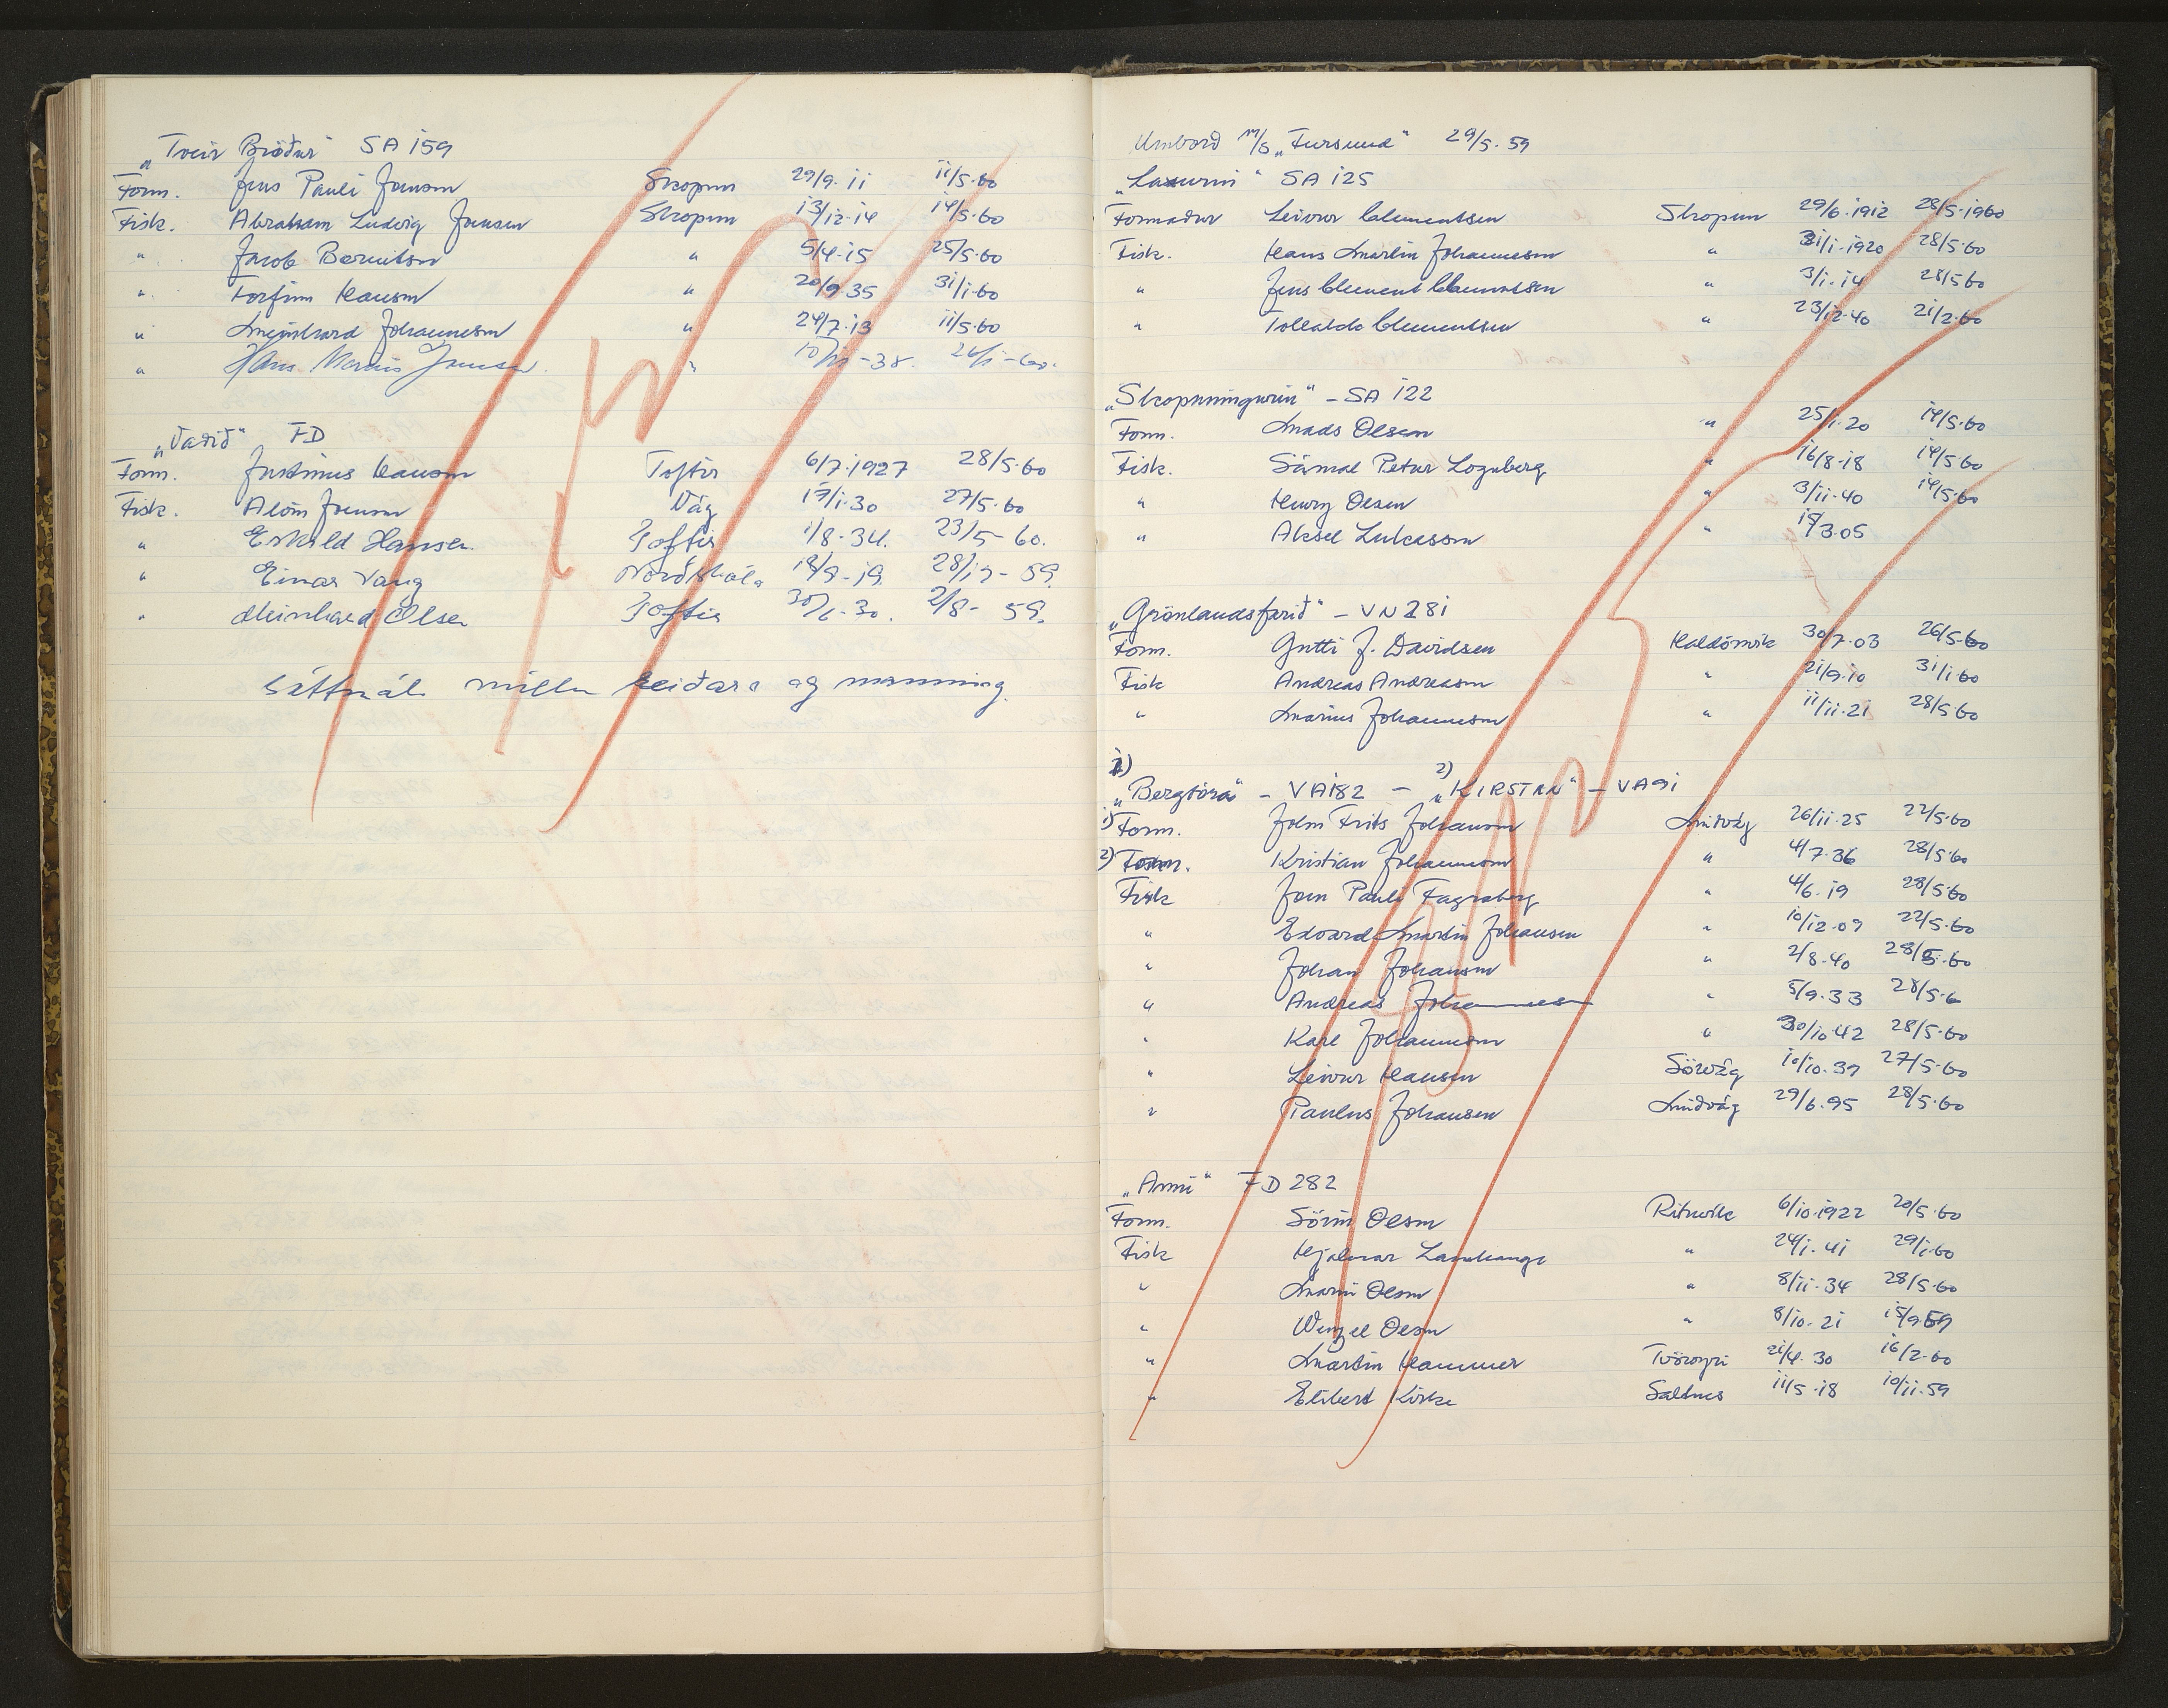 „Tveir Brøður" SA 159
Form. Jens Pauli Jensen Skopun 29/9.11 11/5.60
Fisk. Abraham Ludvig Jensen Skopun 13/12.14 14/5.60
" Jacob Berintsen " 5/4.15 25/5.60
" Torfinn Hansen " 20/9.35 31/1.60
" Meinhard Johannesen " 24/7.13 11/5.60
" Hans Marius Jensen " -38. 26/1-60.
„Varið" FD
Form. Justinus Hansen Toftir 6/7.1927 28/5.60
Fisk. Joensen Vág 17/1.30 27/5.60
" Eskild Hansen Toftir 1/8-34. 23/5-60.
" Einar Vang Norðskála 19/9-19. 28/12-59.
" Meinhard Olsen Toftir 30/6-30. 2/8-59.
Sáttmáli millu reiðara og manning.
Umborð m/s „Fursund" 29/5.59
„Laxurin" SA 125
Formaður Leivur Clementsen Skopun 29/6.1912 28/5.1960
Fisk. Hans Martin Johannesen " 31/1.1920 28/5.60
" Jens Clement Clementsen " 3/1.14 28/5 60
" Tollaldo Clementsen " 23/12.40 21/2.60
„Skopunningurin" – SA 122
Form. Mads Olsen " 25/1.20 14/5.60
Fisk. Sámal Petur Lognberg " 16/8-18 14/5.60
" Henry Olsen " 3/11-40 14/5.60
" Aksel Lukassen " 3.05
„Grönlandsfarið" – VN 281
Form. Gutti J. Davidsen Haldórsvik 30/7.03 26/5.60
Fisk Andreas Andreasen " 21/9.10 31/1.60
" Marius Johannesen " 11/11.21 28/5 60
1) 2)
„Bergtóra" – VA182 – „KIRSTAN" – VA91
1) Form. John Frits Johansen Miðvág 26/11-25 22/5.60
2) Form. Kristian Johannesen " 4/7.36 28/5.60
Fisk Joen Pauli Fagraberg " 4/6.19 28/5.60
" Edvard Martin Johansen " 10/12.09 22/5.60
" Johan Johansen " 2/8-40 28/5.60
" Andreas Johannesen " 5/9.33 28/5.6
" Karl Johannesen " 30/10.42 28/5.60
" Leivur Hansen Sörvág 10/10.39 27/5.60
" Paulus Johansen Miðvág 29/6.95 28/5.60
„Anni" FD 282
Form. Sörin Olsen Rituvik 6/10.1922 20/5.60
Fisk Hjalmar Lamhauge " 24/1.41 29/1.60
" Marin Olsen " 8/11-34 28/5.60
" Wenzel Olsen " 8/10.21 15/9.59
" Martin Hammer Tvöroyri 21/4.30 16/2.60
" Elibert Kirke Saltnes 11/5.18 10/11.59
1959
1959